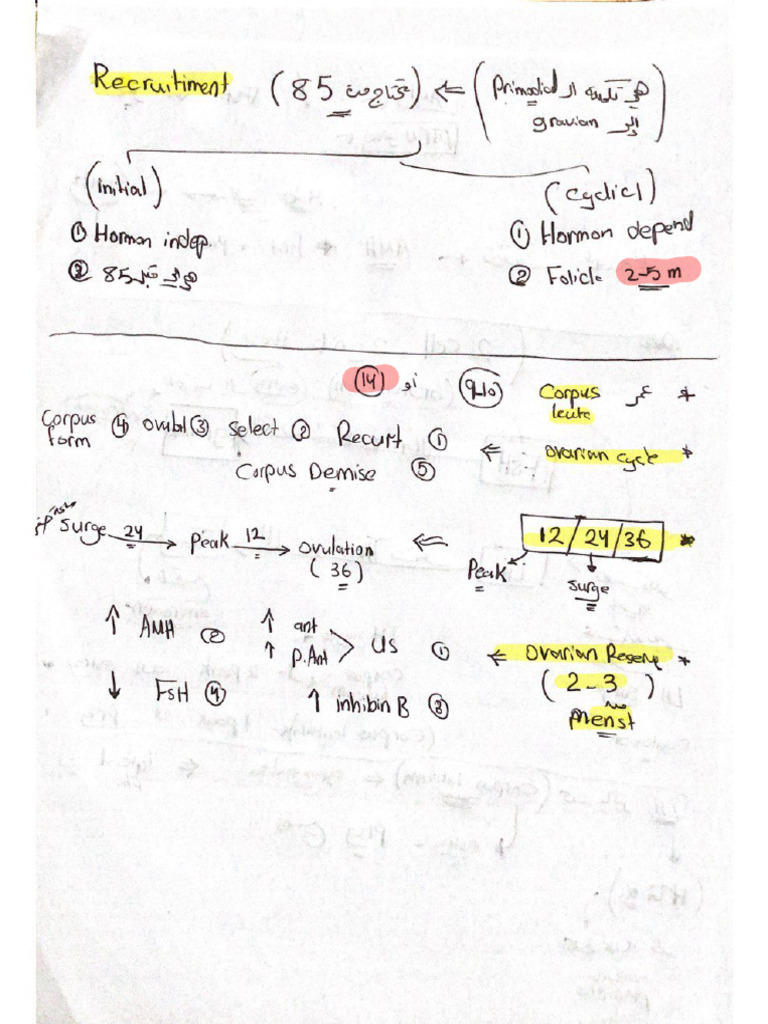 Recruitiment (85 تحتاج منه) ⇐ (هي تكبية الـ Primodial
والى gravian)
(initial)
① Hormon indep.
② هوالى قبل 85
(cyclicl)
① Hormon depend
② Folicle 2-5 m
* عمر Corpus leute (9-10) أو (14)
* ovarian cycle ⇐ ① Recurt ② Select ③ ovubl ④ Corpus form
⑤ Corpus Demise
* 12/24/36 ⇐
Peak
surge
surge 24 → Peak 12 → ovulation
(36)
* Ovarian Reserve ⇐ ① US ↑ ant ↑ P.Ant
② ↑ AMH
(2-3) Menst
③ ↑ inhibin B
④ ↓ FSH